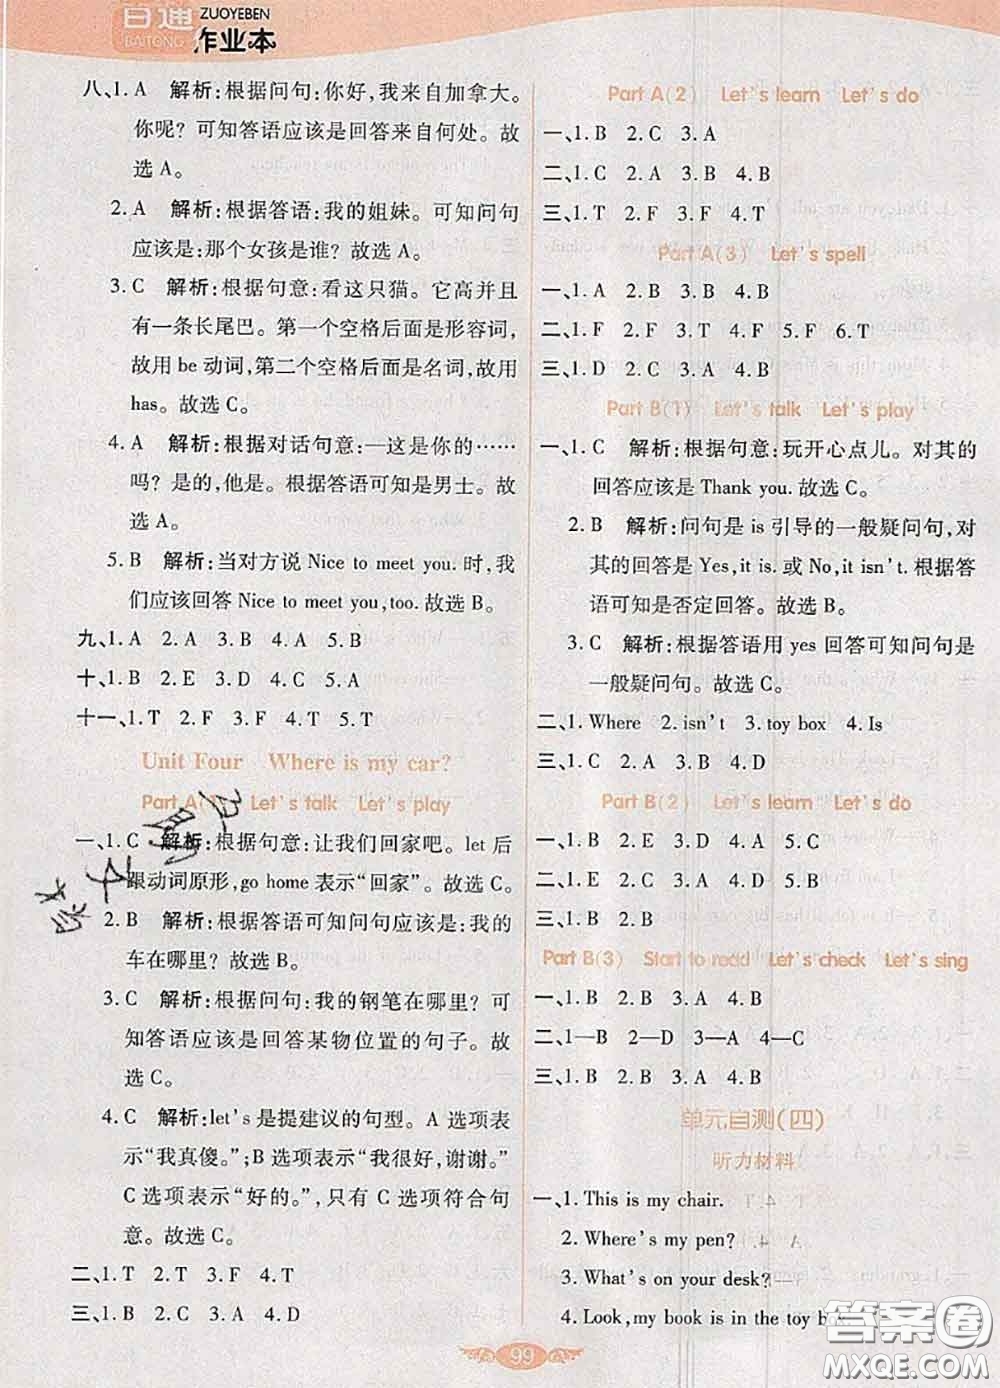 百通
BAITONG
ZUOYEBEN
作业本
八、1. A 解析:根据问句:你好,我来自加拿大。
你呢? 可知答语应该是回答来自何处。故
选 A。
2. A 解析:根据答语:我的姐妹。可知问句
应该是:那个女孩是谁? 故选 A。
3. C 解析:根据句意:看这只猫。它高并且
有一条长尾巴。第一个空格后面是形容词,
故用 be 动词,第二个空格后面是名词,故用
has。故选 C。
4. A 解析:根据对话句意:—这是你的……
吗? 是的,他是。根据答语可知是男士。故
选 A。
5. B 解析:当对方说 Nice to meet you. 时,我
们应该回答 Nice to meet you,too. 故选 B。
九、1. A 2. A 3. B 4. A 5. B
十、1. B 2. E 3. D 4. C 5. A
十一、1. T 2. F 3. F 4. T 5. T
Unit Four Where is my car?
Part A(1) Let's talk Let's play
一、1. C 解析:根据句意:让我们回家吧。let 后
跟动词原形,go home 表示“回家”。故选 C。
2. B 解析:根据答语可知问句应该是:我的
车在哪里? 故选 B。
3. C 解析:根据问句:我的钢笔在哪里? 可
知答语应该是回答某物位置的句子。故
选 C。
4. C 解析:let's 是提建议的句型。A 选项表
示“我真傻。”;B 选项表示“我很好,谢谢。”
C 选项表示“好的。”,只有 C 选项符合句
意。故选 C。
二、1. T 2. T 3. F 4. T
三、1. B 2. C 3. A 4. D
Part A(2) Let's learn Let's do
一、1. B 2. C 3. A
二、1. C 2. A 3. B 4. B
三、1. T 2. F 3. F 4. T
Part A(3) Let's spell
一、1. A 2. B 3. B 4. B
二、1. F 2. F 3. T 4. F 5. F 6. T
三、1. D 2. C 3. A 4. B
Part B(1) Let's talk Let's play
一、1. C 解析:根据句意:玩开心点儿。对其的
回答应该是 Thank you. 故选 C。
2. B 解析:问句是 is 引导的一般疑问句,对
其的回答是 Yes,it is. 或 No,it isn't. 根据答
语可知是否定回答。故选 B。
3. C 解析:根据答语用 yes 回答可知问句是
一般疑问句。故选 C。
二、1. Where 2. isn't 3. toy box 4. Is
三、1. C 2. A 3. B 4. D
Part B(2) Let's learn Let's do
一、1. B 2. E 3. D 4. A 5. C
二、1. E 2. C 3. D 4. A 5. B
三、1. B 2. B
Part B(3) Start to read Let's check Let's sing
一、1. B 2. B 3. A 4. B
二、1—B 2—D 3—A 4—C
三、1. B 2. B 3. A 4. B
单元自测(四)
听力材料
一、1. This is my chair.
2. Where's my pen?
3. What's on your desk?
4. Look,my book is in the toy
答案卷
MXQE.COM
99